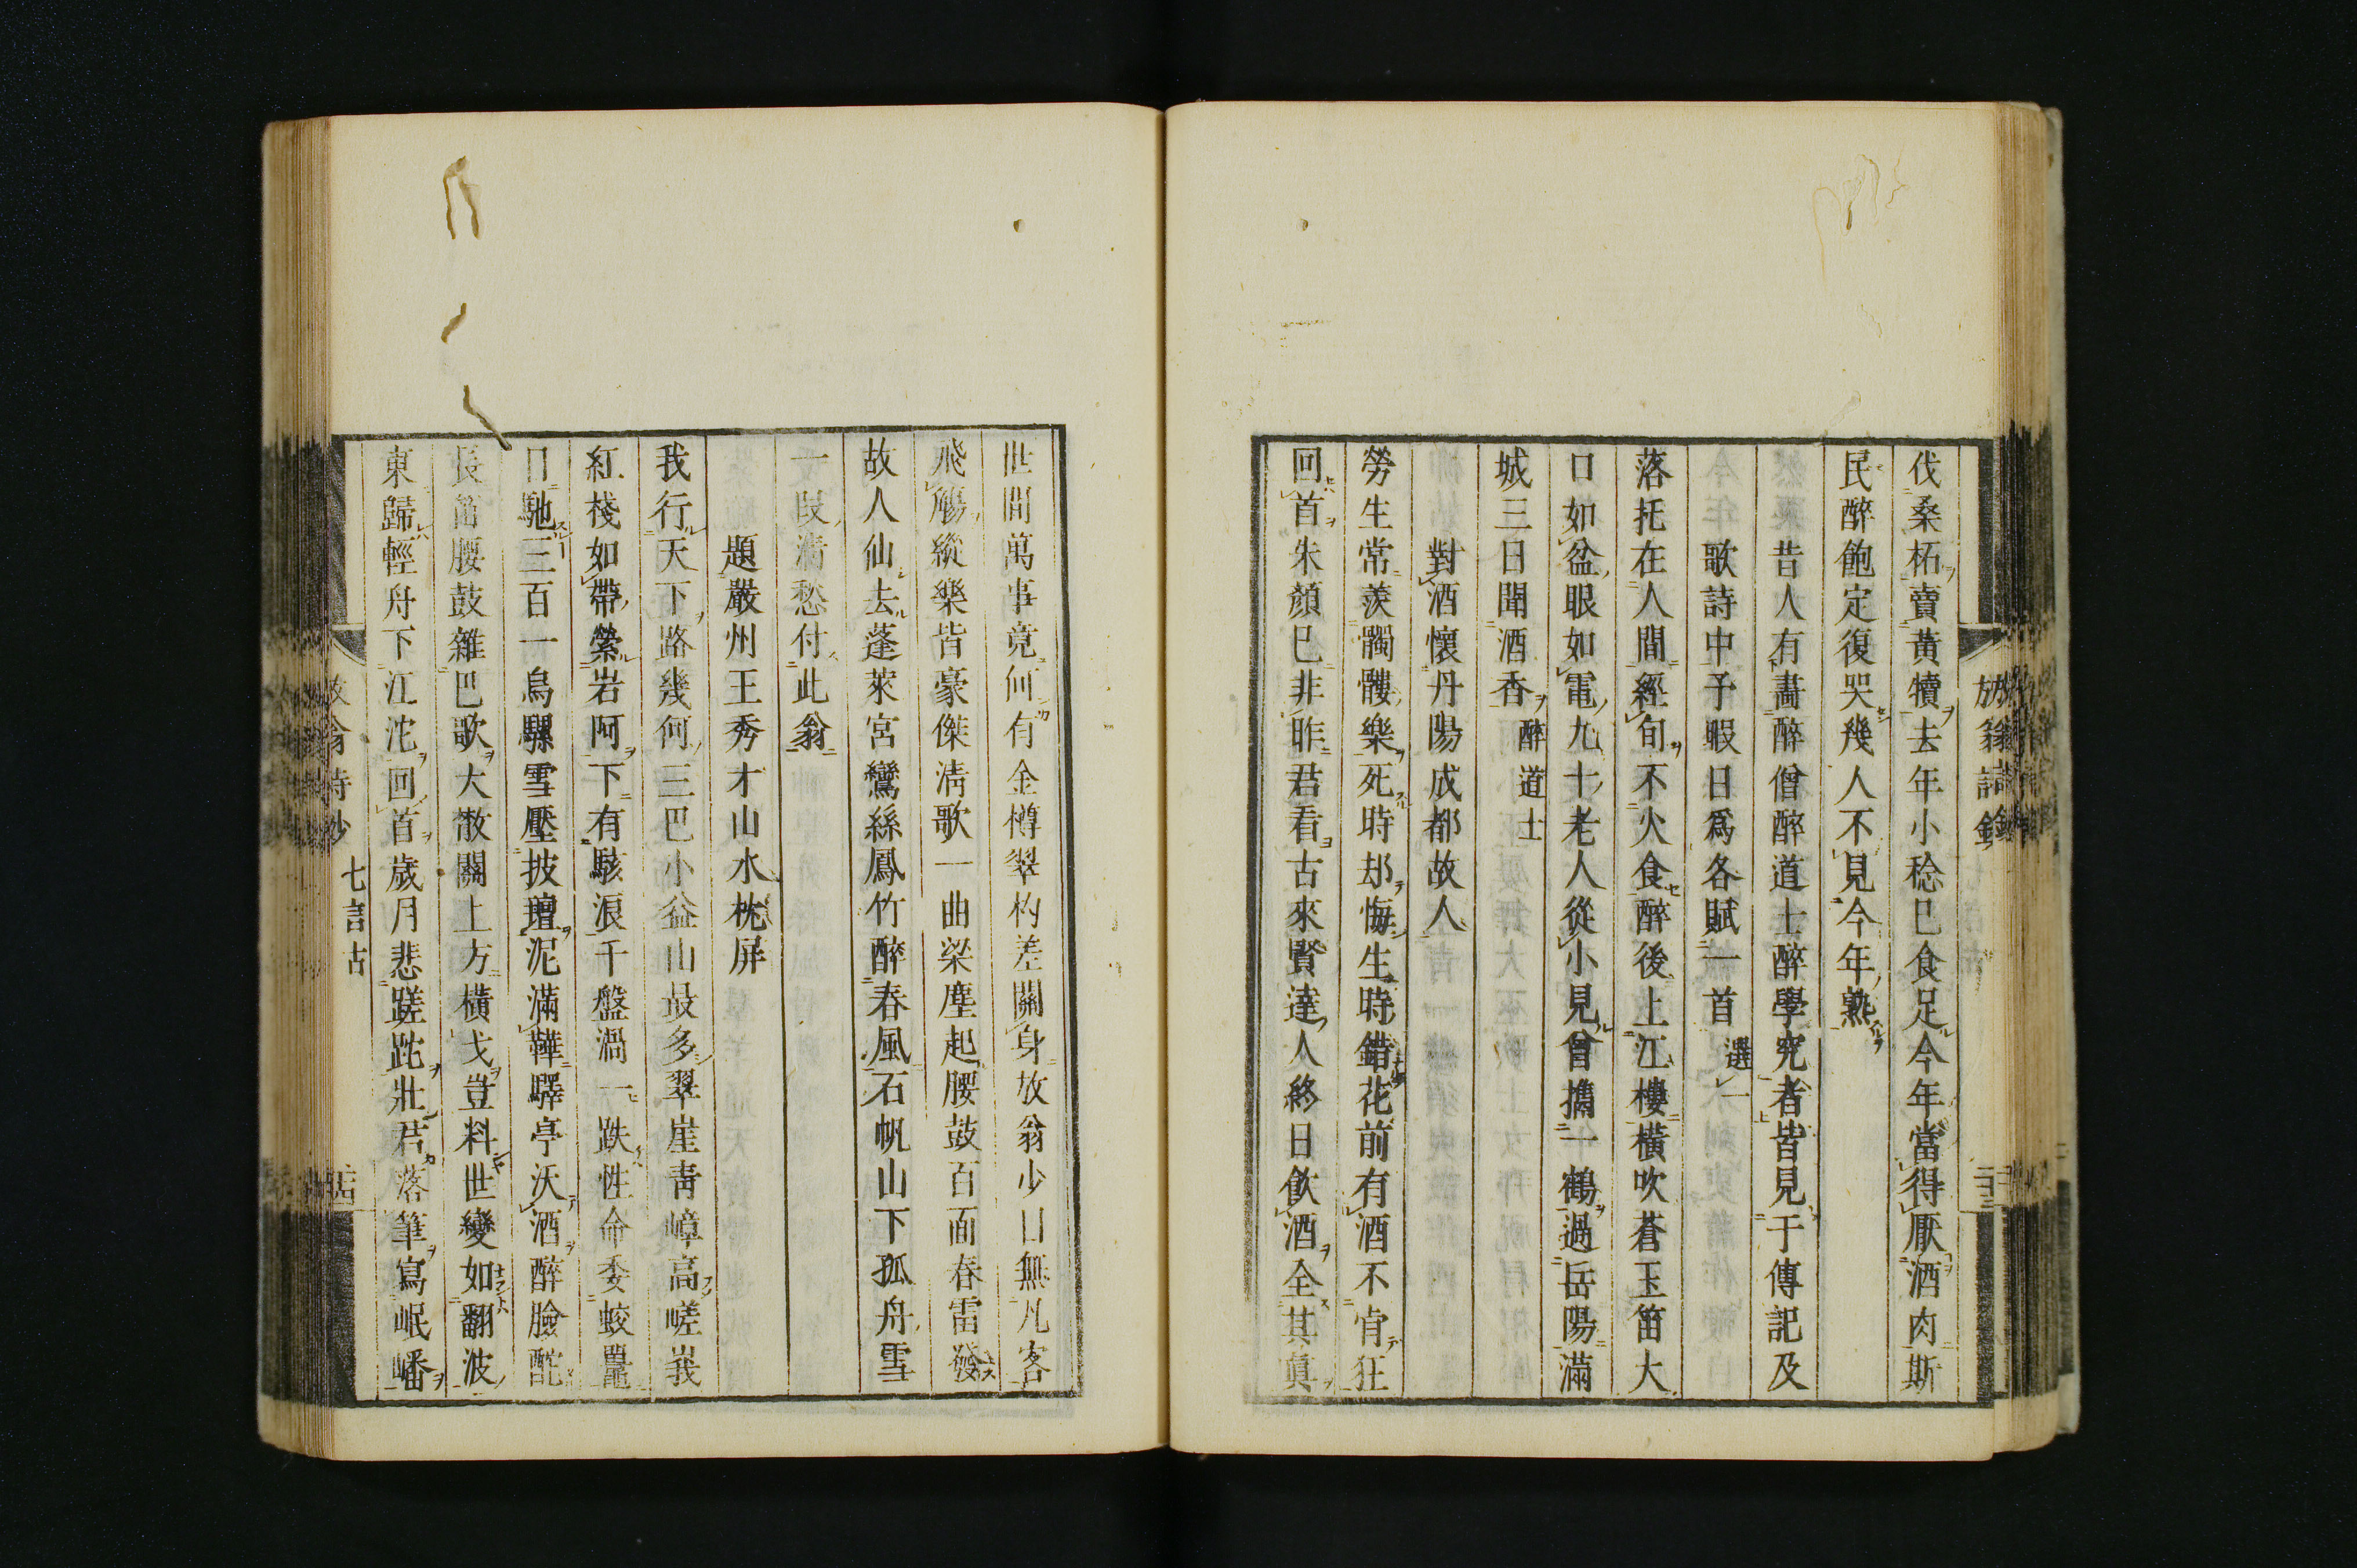 伐桑柘賣黃犢去年小稔已食足今年當得厭酒肉斯
民醉飽定復哭幾人不見今年熟
昔人有畵醉僧醉道士醉學究者皆見于傳記及
歌詩中予暇日爲各賦一首 選一
落托在人間經旬不火食醉後上江樓橫吹蒼玉笛大
口如盆眼如電九十老人從小見曾攜一鶴過岳陽滿
城三日聞酒香 醉道士
對酒懷丹陽成都故人
勞生常羨髑髏樂死時却悔生時錯花前有酒不肯狂
回首朱顏已非昨君看古來賢達人終日飲酒全其眞
世間萬事竟何有金樽翠杓差關身放翁少日無凡客
飛觴縱樂皆豪傑淸歌一曲梁塵起腰鼓百面春雷發
故人仙去蓬萊宮鸞絲鳳竹醉春風石帆山下孤舟雪
一段淸愁付此翁
題嚴州王秀才山水枕屏
我行天下路幾何三巴小益山最多翠崖靑嶂高嵯峩
紅棧如帶縈岩阿下有駭浪千盤渦一跌性命委蛟鼉
日馳三百一烏騾雪壓披氊泥滿鞾驛亭沃酒醉臉酡
長笛腰鼓雜巴歌大散關上方橫戈豈料世變如翻波
東歸輕舟下江沱回首歲月悲蹉跎壯君落筆寫岷嶓
放翁詩鈔
七言古